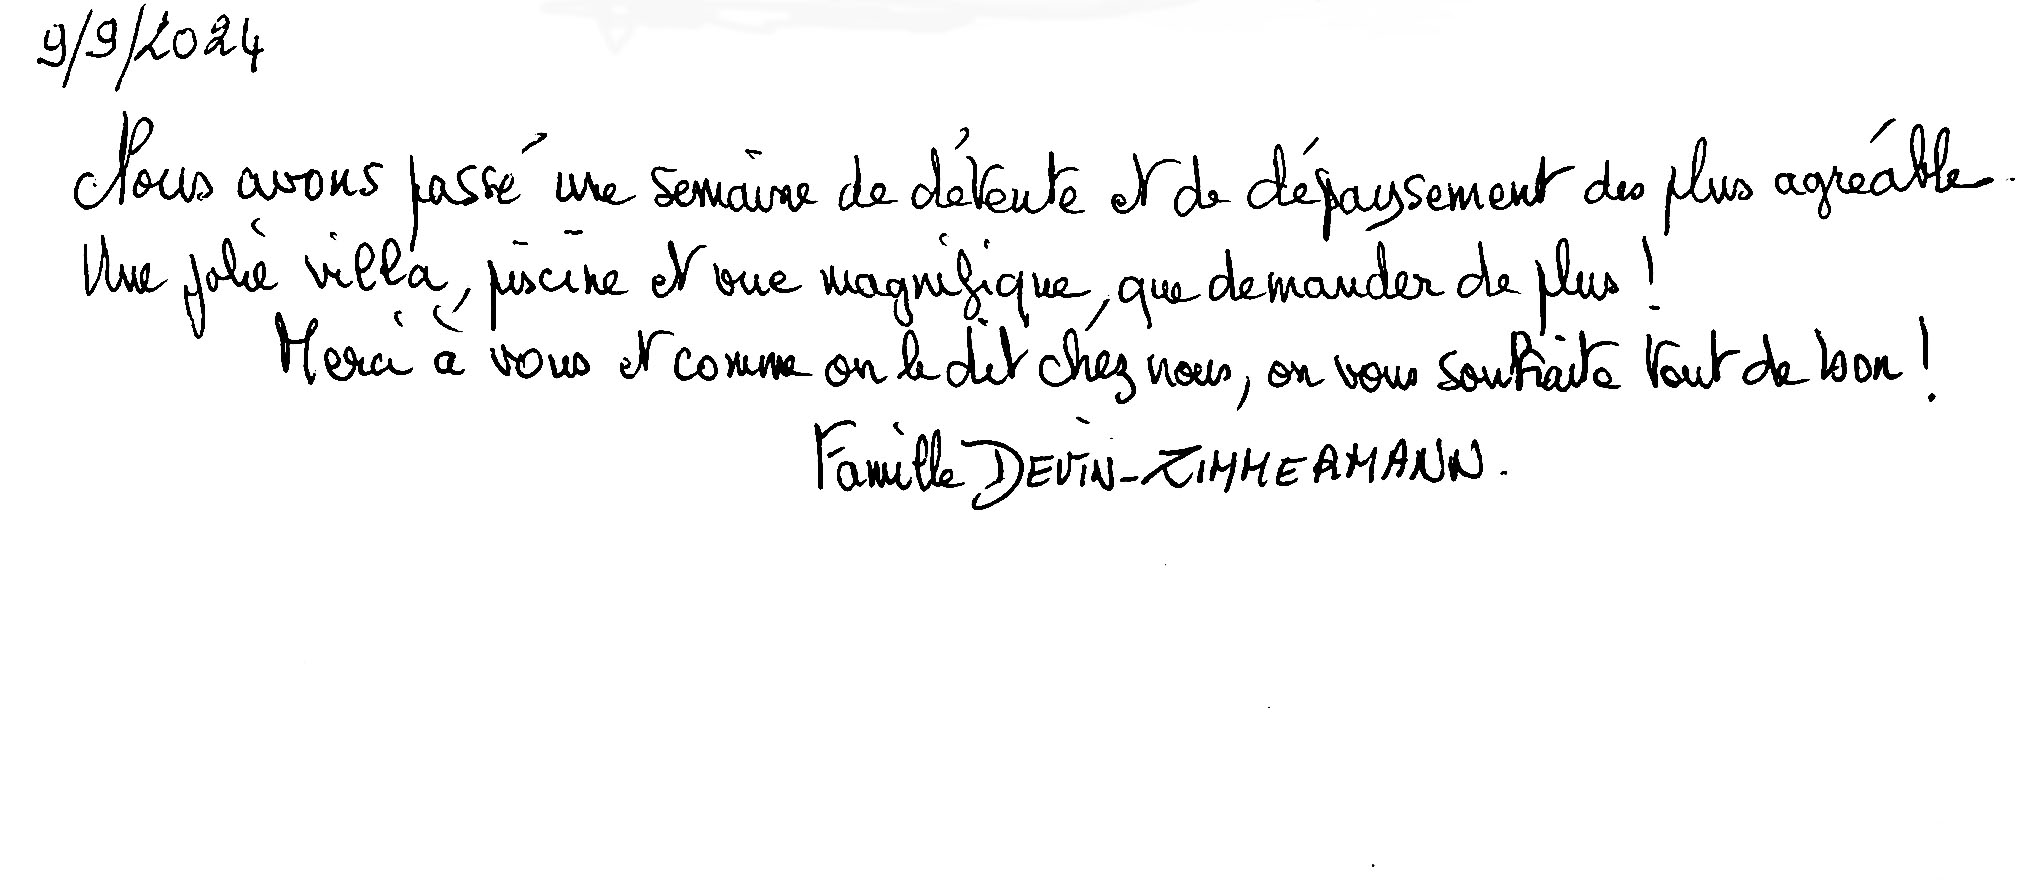 9/9/2024
Nous avons passé une semaine de détente et de dépaysement des plus agréable.
Une jolie villa, piscine et vue magnifique, que demander de plus !
Merci à vous et comme on le dit chez nous, on vous souhaite tout de bon !
Famille DEVIN-ZIMMERMANN.